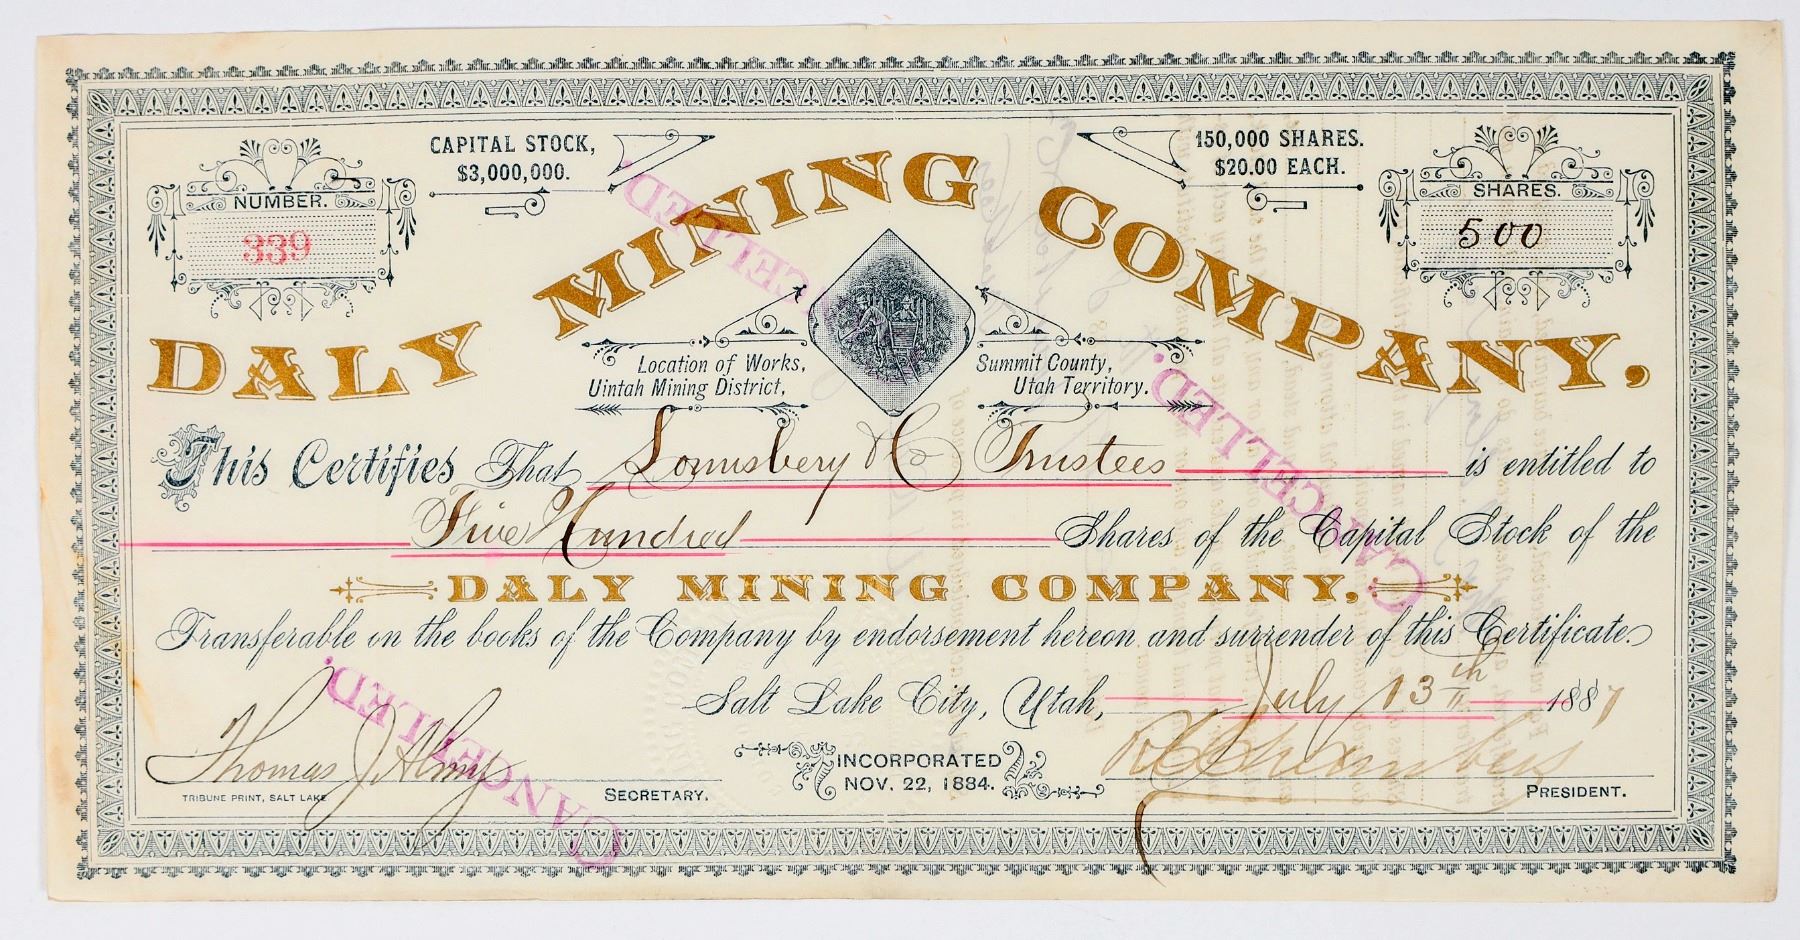 CAPITAL STOCK,
$3,000,000.
150,000 SHARES.
$20.00 EACH.
NUMBER.
339
SHARES.
500
DALY MINING COMPANY,
Location of Works,
Uintah Mining District,
Summit County,
Utah Territory.
This Certifies That Lounsbery & Co Trustees is entitled to
Five Hundred Shares of the Capital Stock of the
DALY MINING COMPANY,
Transferable on the books of the Company by endorsement hereon and surrender of this Certificate.
Salt Lake City, Utah, July 13th 1887
Thomas J. Almy
SECRETARY.
TRIBUNE PRINT, SALT LAKE
INCORPORATED
NOV. 22, 1884.
R C Chambers
PRESIDENT.
CANCELLED.
CANCELLED.
CANCELLED.